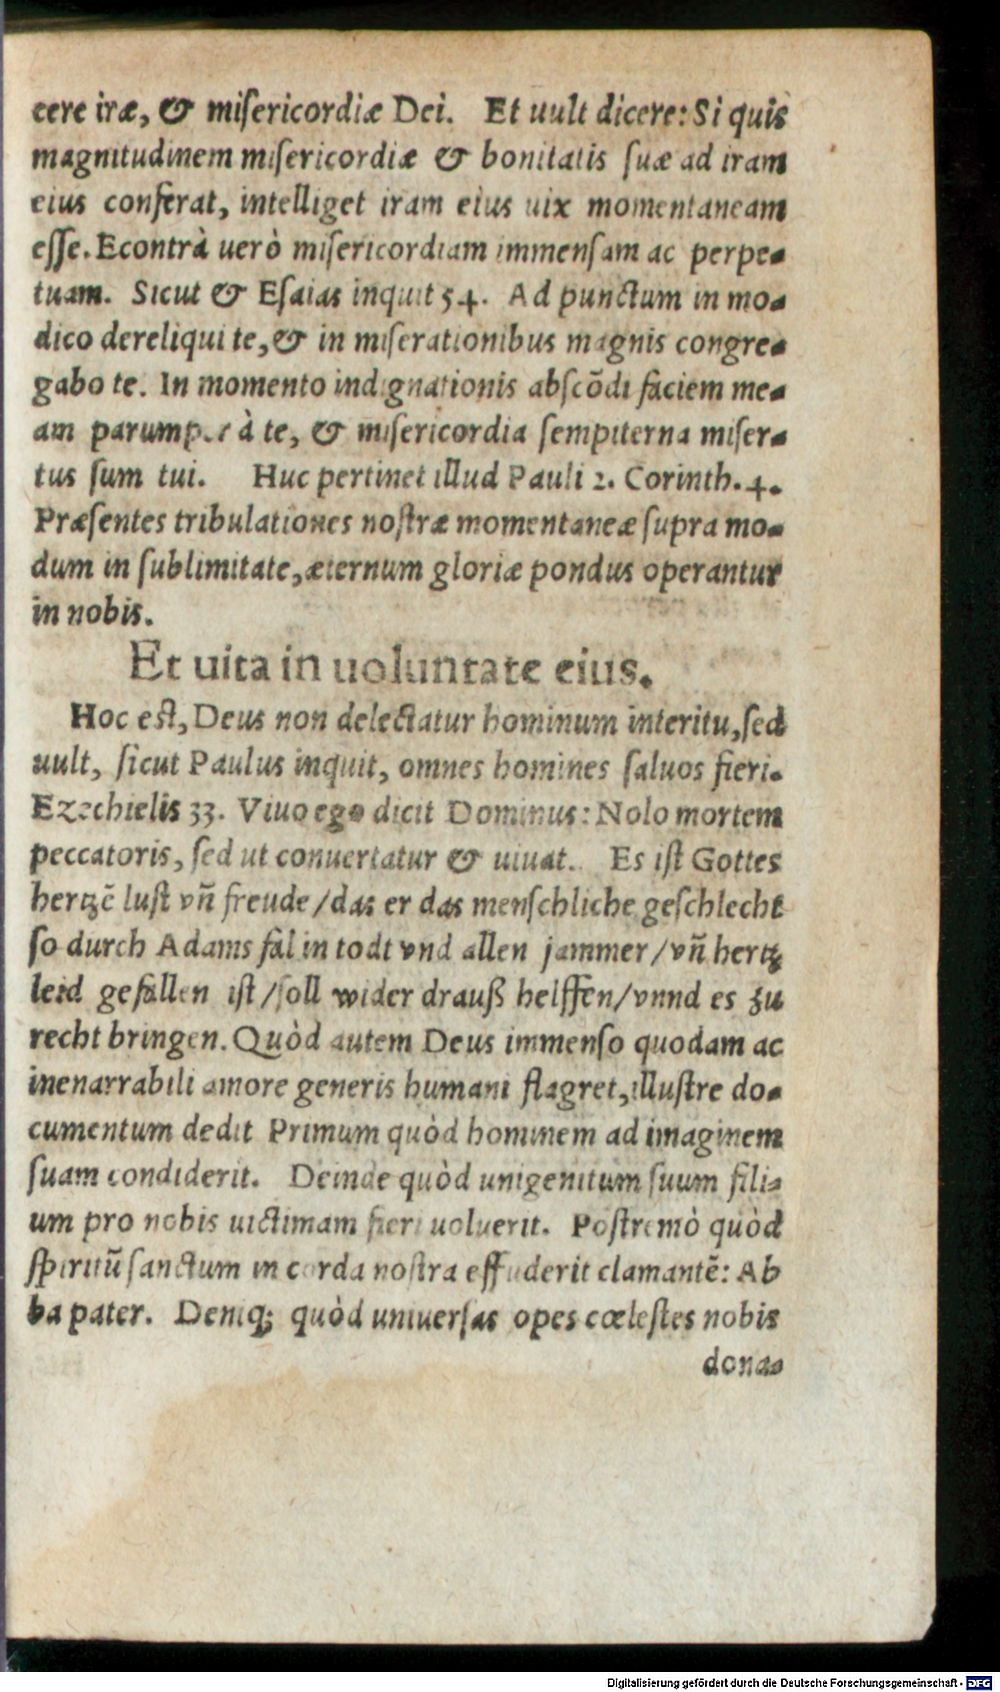 cere iræ, & miſericordiæ Dei. Et uult dicere: Si quis
magnitudinem miſericordiæ & bonitatis ſuæ ad iram
eius conferat, intelliget iram eius uix momentaneam
eſſe. Econtrà uerò miſericordiam immenſam ac perpe-
tuam. Sicut & Eſaias inquit 54. Ad punctum in mo-
dico dereliqui te, & in miſerationibus magnis congre-
gabo te. In momento indignationis abſcōdi faciem me-
am parumper à te, & miſericordia ſempiterna miſer-
tus ſum tui. Huc pertinet illud Pauli 2. Corinth. 4.
Præſentes tribulationes noſtræ momentaneæ ſupra mo-
dum in ſublimitate, æternum gloriæ pondus operantur
in nobis.
Et uita in uoluntate eius.
Hoc eſt, Deus non delectatur hominum interitu, ſed
uult, ſicut Paulus inquit, omnes homines ſaluos fieri.
Ezechielis 33. Viuo ego dicit Dominus: Nolo mortem
peccatoris, ſed ut conuertatur & uiuat. Es iſt Gottes
hertzē luſt vñ freude / das er das menſchliche geſchlecht
ſo durch Adams fal in todt vnd allen jammer / vñ hertz
leid gefallen iſt / ſoll wider drauß helffen / vnnd es zu
recht bringen. Quòd autem Deus immenſo quodam ac
inenarrabili amore generis humani flagret, illuſtre do-
cumentum dedit Primum quòd hominem ad imaginem
ſuam condiderit. Deinde quòd unigenitum ſuum fili-
um pro nobis uictimam fieri uoluerit. Poſtremò quòd
ſpiritū ſanctum in corda noſtra effuderit clamantē: Ab
ba pater. Deniq; quòd uniuerſas opes cœleſtes nobis
dona-
Digitalisierung gefördert durch die Deutsche Forschungsgemeinschaft - DFG